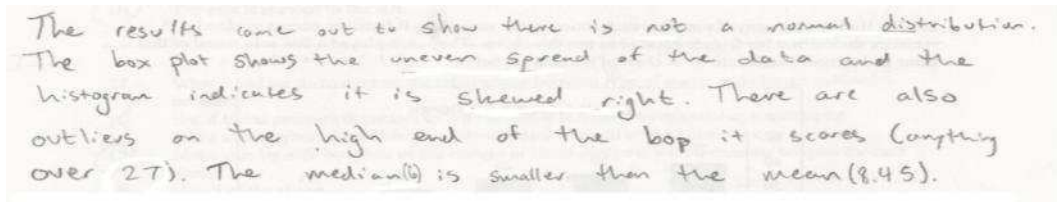 The results come out to show there is not a normal distribution.
The box plot shows the uneven spread of the data and the
histogram indicates it is skewed right. There are also
outliers on the high end of the bop it scores (anything
over 27). The median(6) is smaller than the mean (8.45).